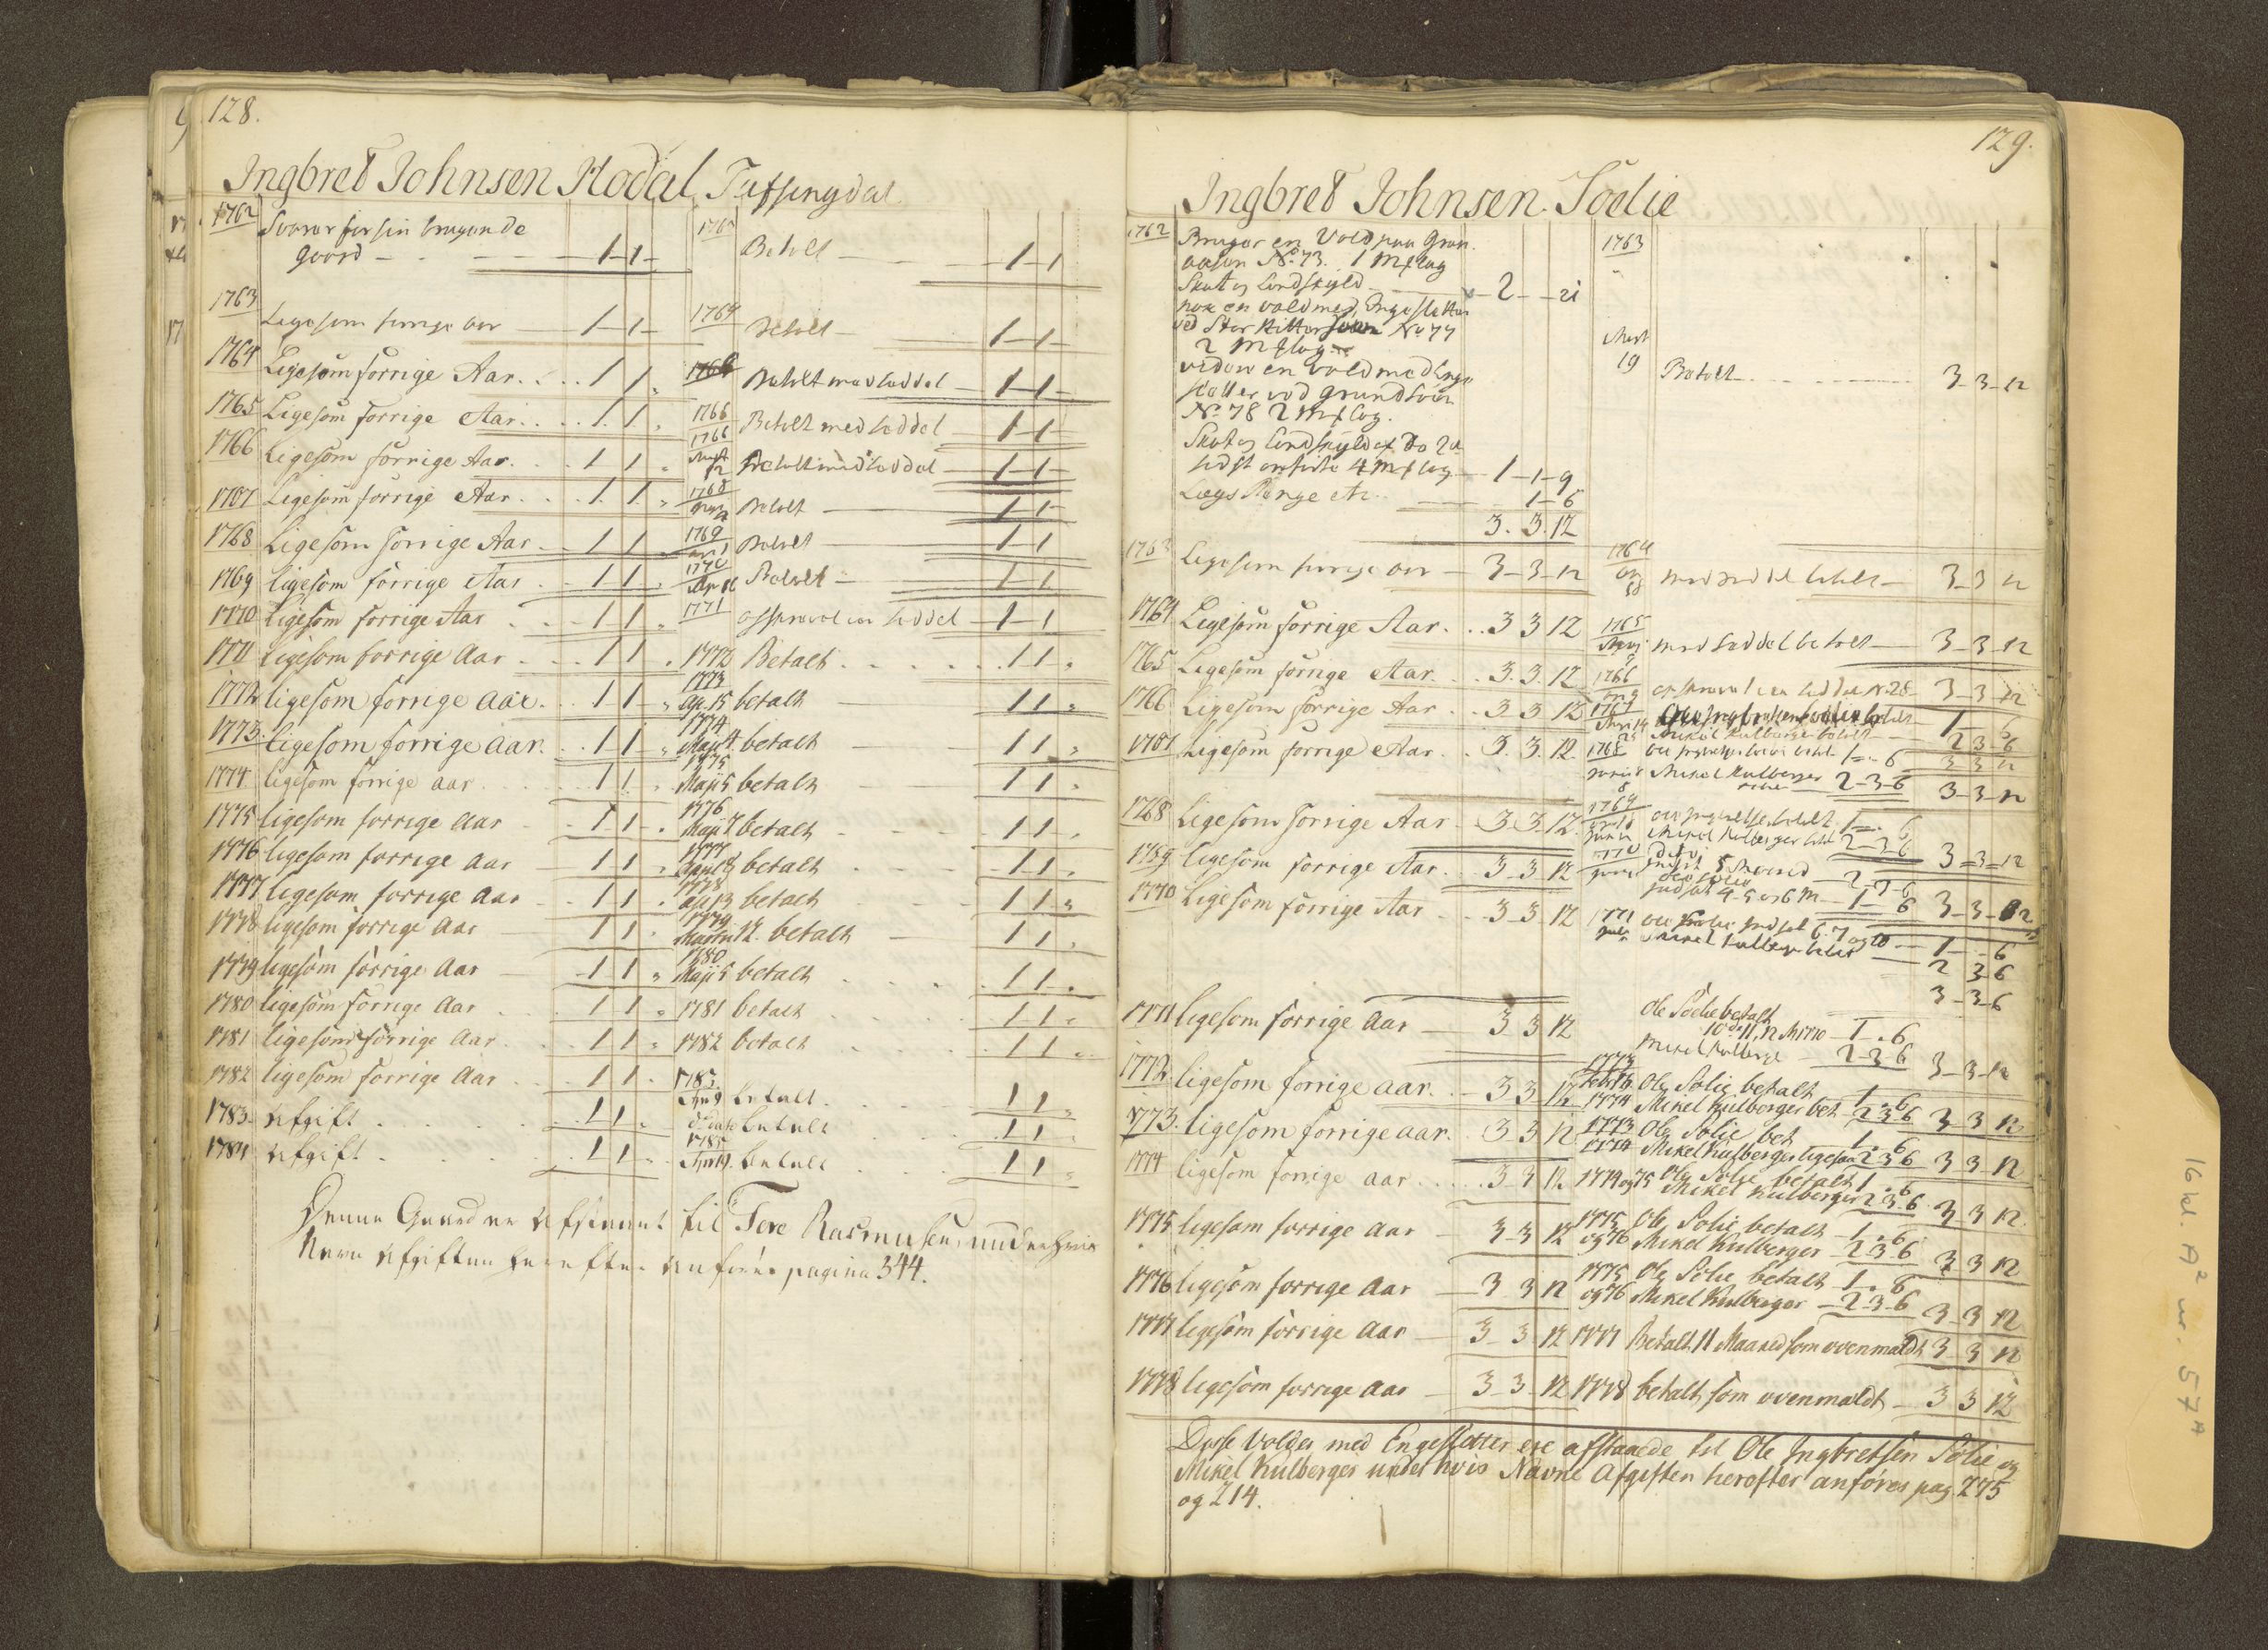 128.
Ingbret Johnsen Hodal Tufsingdal
1762 Svarer for sin brugende
Goard - - - 1-1-
1763 Ligesom forrige aar 1-1-
1764 Ligesom forrige Aar. . . . 1 1 "
1765 Ligesom forrige Aar. . . . 1. 1. "
1766 Ligesom forrige Aar. . . 1 1 "
1767 Ligesom forrige Aar . . . 1. 1. "
1768 Ligesom forrige Aar . . 1 1 "
1769 ligesom forrige Aar . . 1 1 "
1770 Ligesom forrige Aar . . 1 1 "
1771 Ligesom forrige Aar . . . 1 1 "
1772 ligesom forrige Aar. . . 1 1 "
1773. ligesom forrige Aar. . . 1 1 "
1774 ligesom forrige aar . . . . . 1 1 "
1775 ligesom forrige Aar - . 1 1 "
1776 ligesom forrige Aar - 1 1 "
1777 ligesom forrige Aar - . 1 1 "
1778 ligesom forrige Aar - 1 1 "
1779 ligesom forrige Aar - 1 1 "
1780 ligesom forrige Aar . . . 1 1 "
1781 ligesom forrige Aar . . . 1 1 "
1782 ligesom forrige Aar . . . 1 1 "
1783. Afgift . . . . . . 1 1 "
1784 Afgift . . . . . . 1 1 "
Betalt - - 1-1
1764 Betalt - 1-1-
Betalt med Seddel - 1-1-
1766 Betalt med seddel 1-1-
1766 Betalt med Seddel - 1-1-
1768 Betalt - 1-1-
1769 Betalt - 1-1
1770 Betalt - 1-1
1771 seddel 1-1
1772 Betalt . . . . . . 1 1 "
1773 Ap. 15 betalt - 1 1 "
1774 Maji 4. betalt - 1 1 "
1775 Maji 5 betalt - 1 1 "
1776 Maji 7 betalt - . 1 1 "
1777 betalt . . . 1 1 "
1778 betalt . . . 1 1 "
1779 Martii 12. betalt - 1 1 "
1780 Maji 5 betalt . . . . 1 1 "
1781 betalt . . . . 1 1 "
1782 betalt . . . . 1 1 "
1783. betalt . . . . 1 1 "
betalt . . . 1 1 "
1785 betalt . . . 1 1 "
Denne Gaard er Afstaaet til Tore Rasmusen, under hvis
Navn Afgiften herefter anføres pagina 344.
129.
Ingbret Johnsen Söelie
1762 Bruger en Vold paa Gron
aasen No. 73. 1 Mslag
Skat og Landskyld - 2 - - 21
nok en vold med Engesletter
No 77
2 Mslag
videre en vold med Enge
sletter ved Grundsöen
No 78 2 Mslag.
Skat og Landskyld af
sidst anførte 4 Mslag - 1-1-9
Lægs Penge etc. - 1-6
3. 3. 12
1763 Ligesom forrige aar - 3-3-12
1764 Ligesom forrige Aar. . . 3 3 12
1765 Ligesom forrige Aar. . . 3. 3. 12
1766 Ligesom forrige Aar . . 3 3 12
1767 Ligesom forrige Aar . . 3. 3. 12.
1768 Ligesom forrige Aar . . 3 3. 12.
1769 ligesom forrige Aar . 3 3 12
1770 Ligesom forrige Aar . . 3 3 12
1771 ligesom forrige Aar - 3 3 12
1772 ligesom forrige Aar. - 3 3 12
1773. ligesom forrige Aar. . 3 3 12
1774 ligesom forrige aar . . . . 3 3 12
1775 ligesom forrige Aar 3 3 12
1776 ligesom forrige Aar - 3 3 12
1777 ligesom forrige Aar - 3 3 12
1778 ligesom forrige Aar - 3 3 12
1763
19 Betalt - - - 3-3-12
1764 med seddel betalt - 3-3-12
1765 med Seddel betalt - 3-3-12
1766 3-3-12
1767 1-6
Mikel Kulberger betalt 2-3-6
3 3 12
1768 betalt 1-6
Mikel Kulberger 2-3-6 3-3-12
1769 betalt 1- 6
Mikel Kulberger 2-3-6 3-3-12
1770 2-3-6
1-6 3-3-12
1771 6. 7 og 10 - 1-6
Mikel Kulberger betalt - 2 3-6
3-3-6
Ole Söelie betalt
1 . 6
Mikel Kulberge - 2-3 6 3-3-12
1773 Ole Sölie betalt 1 . 6
1774 Mikel Kulberger bet 2 3 6 3 3 12
1773 Ole Sölie bet 1 . 6
1774 Mikel Kulberger ligesaa 2 3 6 3 3 12
1774 og 75 Ole Sölie betalt 1 . 6
Mikel Kulberger 2 3 6 3 3 12.
1775 Ole Solie betalt - 1 . 6
og 76 Mikel Kulberger - 2 3 6 3 3 12
1775 Ole Sölie betalt - 1 . 6
og 76 Mikel Kulberger - 2-3-6 3-3 12
1777 Betalt 11 Maaned som ovenmeldt 3 3 12
1778 betalt som ovenmeldt - 3 3 12
Disse Volder med Engesletter ere afstaaede til Ole Ingbretsen Sölie og
Mikel Kulberger under hvis Navne Afgiften herefter anføres pag. 275
og 214.
16 kl. A² nr. 57 A